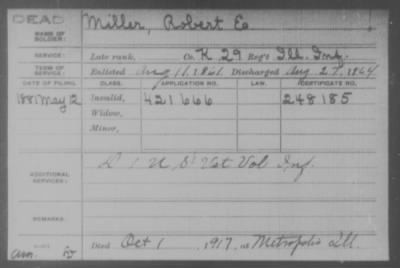 DEAD
NAME OF SOLDIER: Miller, Robert E
SERVICE: Late rank, Co. K, 29 Reg't Ill. Inf.
TERM OF SERVICE: Enlisted Aug 11, 1861. Discharged Aug. 27, 1864
DATE OF FILING. CLASS. APPLICATION NO. LAW. CERTIFICATE NO.
1881 May 12 Invalid, 421666 248185
Widow,
Minor,
ADDITIONAL SERVICES: D 1 U.S. Vet Vol Inf.
REMARKS:
Died Oct 1, 1917, at Metropolis Ill.